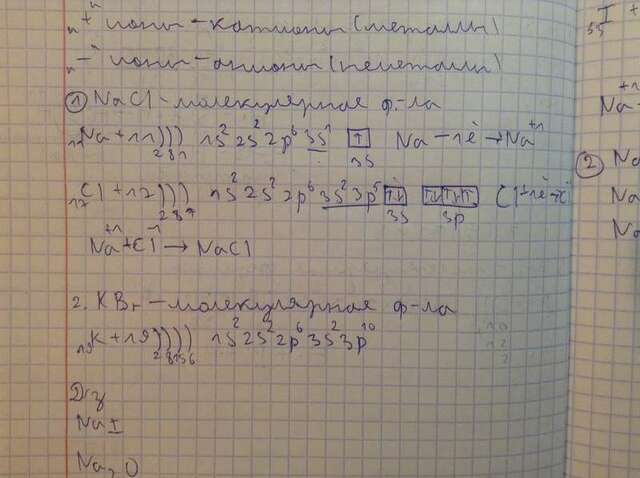 "+" ионы - катионы (металлы)
"-" ионы - анионы (неметаллы)
① NaCl - молекулярная ф-ла
₁₁Na +11))) 1s² 2s² 2p⁶ 3s¹ ↑ Na - 1ē → Na⁺¹
2 8 1 3s
₁₇Cl +17))) 1s² 2s² 2p⁶ 3s² 3p⁵ ↑↓ ↑↓ ↑↓ ↑ Cl +1ē →
2 8 7 3s 3p
Na⁺¹ + Cl⁻¹ → NaCl
2. KBr - молекулярная ф-ла
₁₉K +19)))) 1s² 2s² 2p⁶ 3s² 3p¹⁰
Д/з
NaI
Na₂O
I +
53
Na
② Na
Na
Na